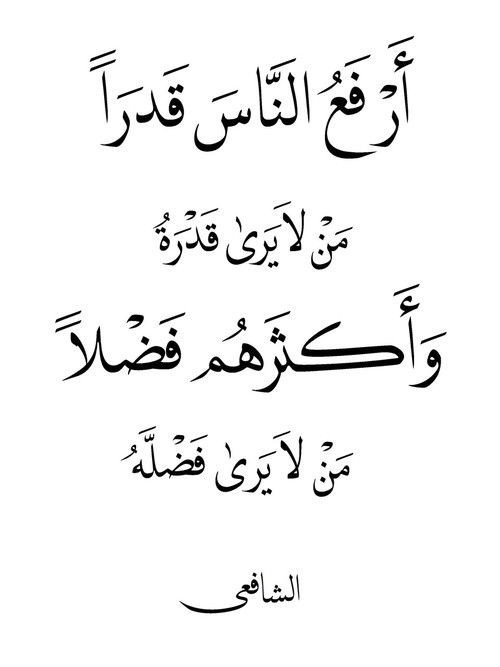 أَرْفَعُ النَّاسَ قَدَراً
مَنْ لاَ يَرىٰ قَدْرَةُ
وَأَكثَرَهُم فَضْلاً
مَنْ لاَ يَرىٰ فَضْلَّهُ
الشافعى